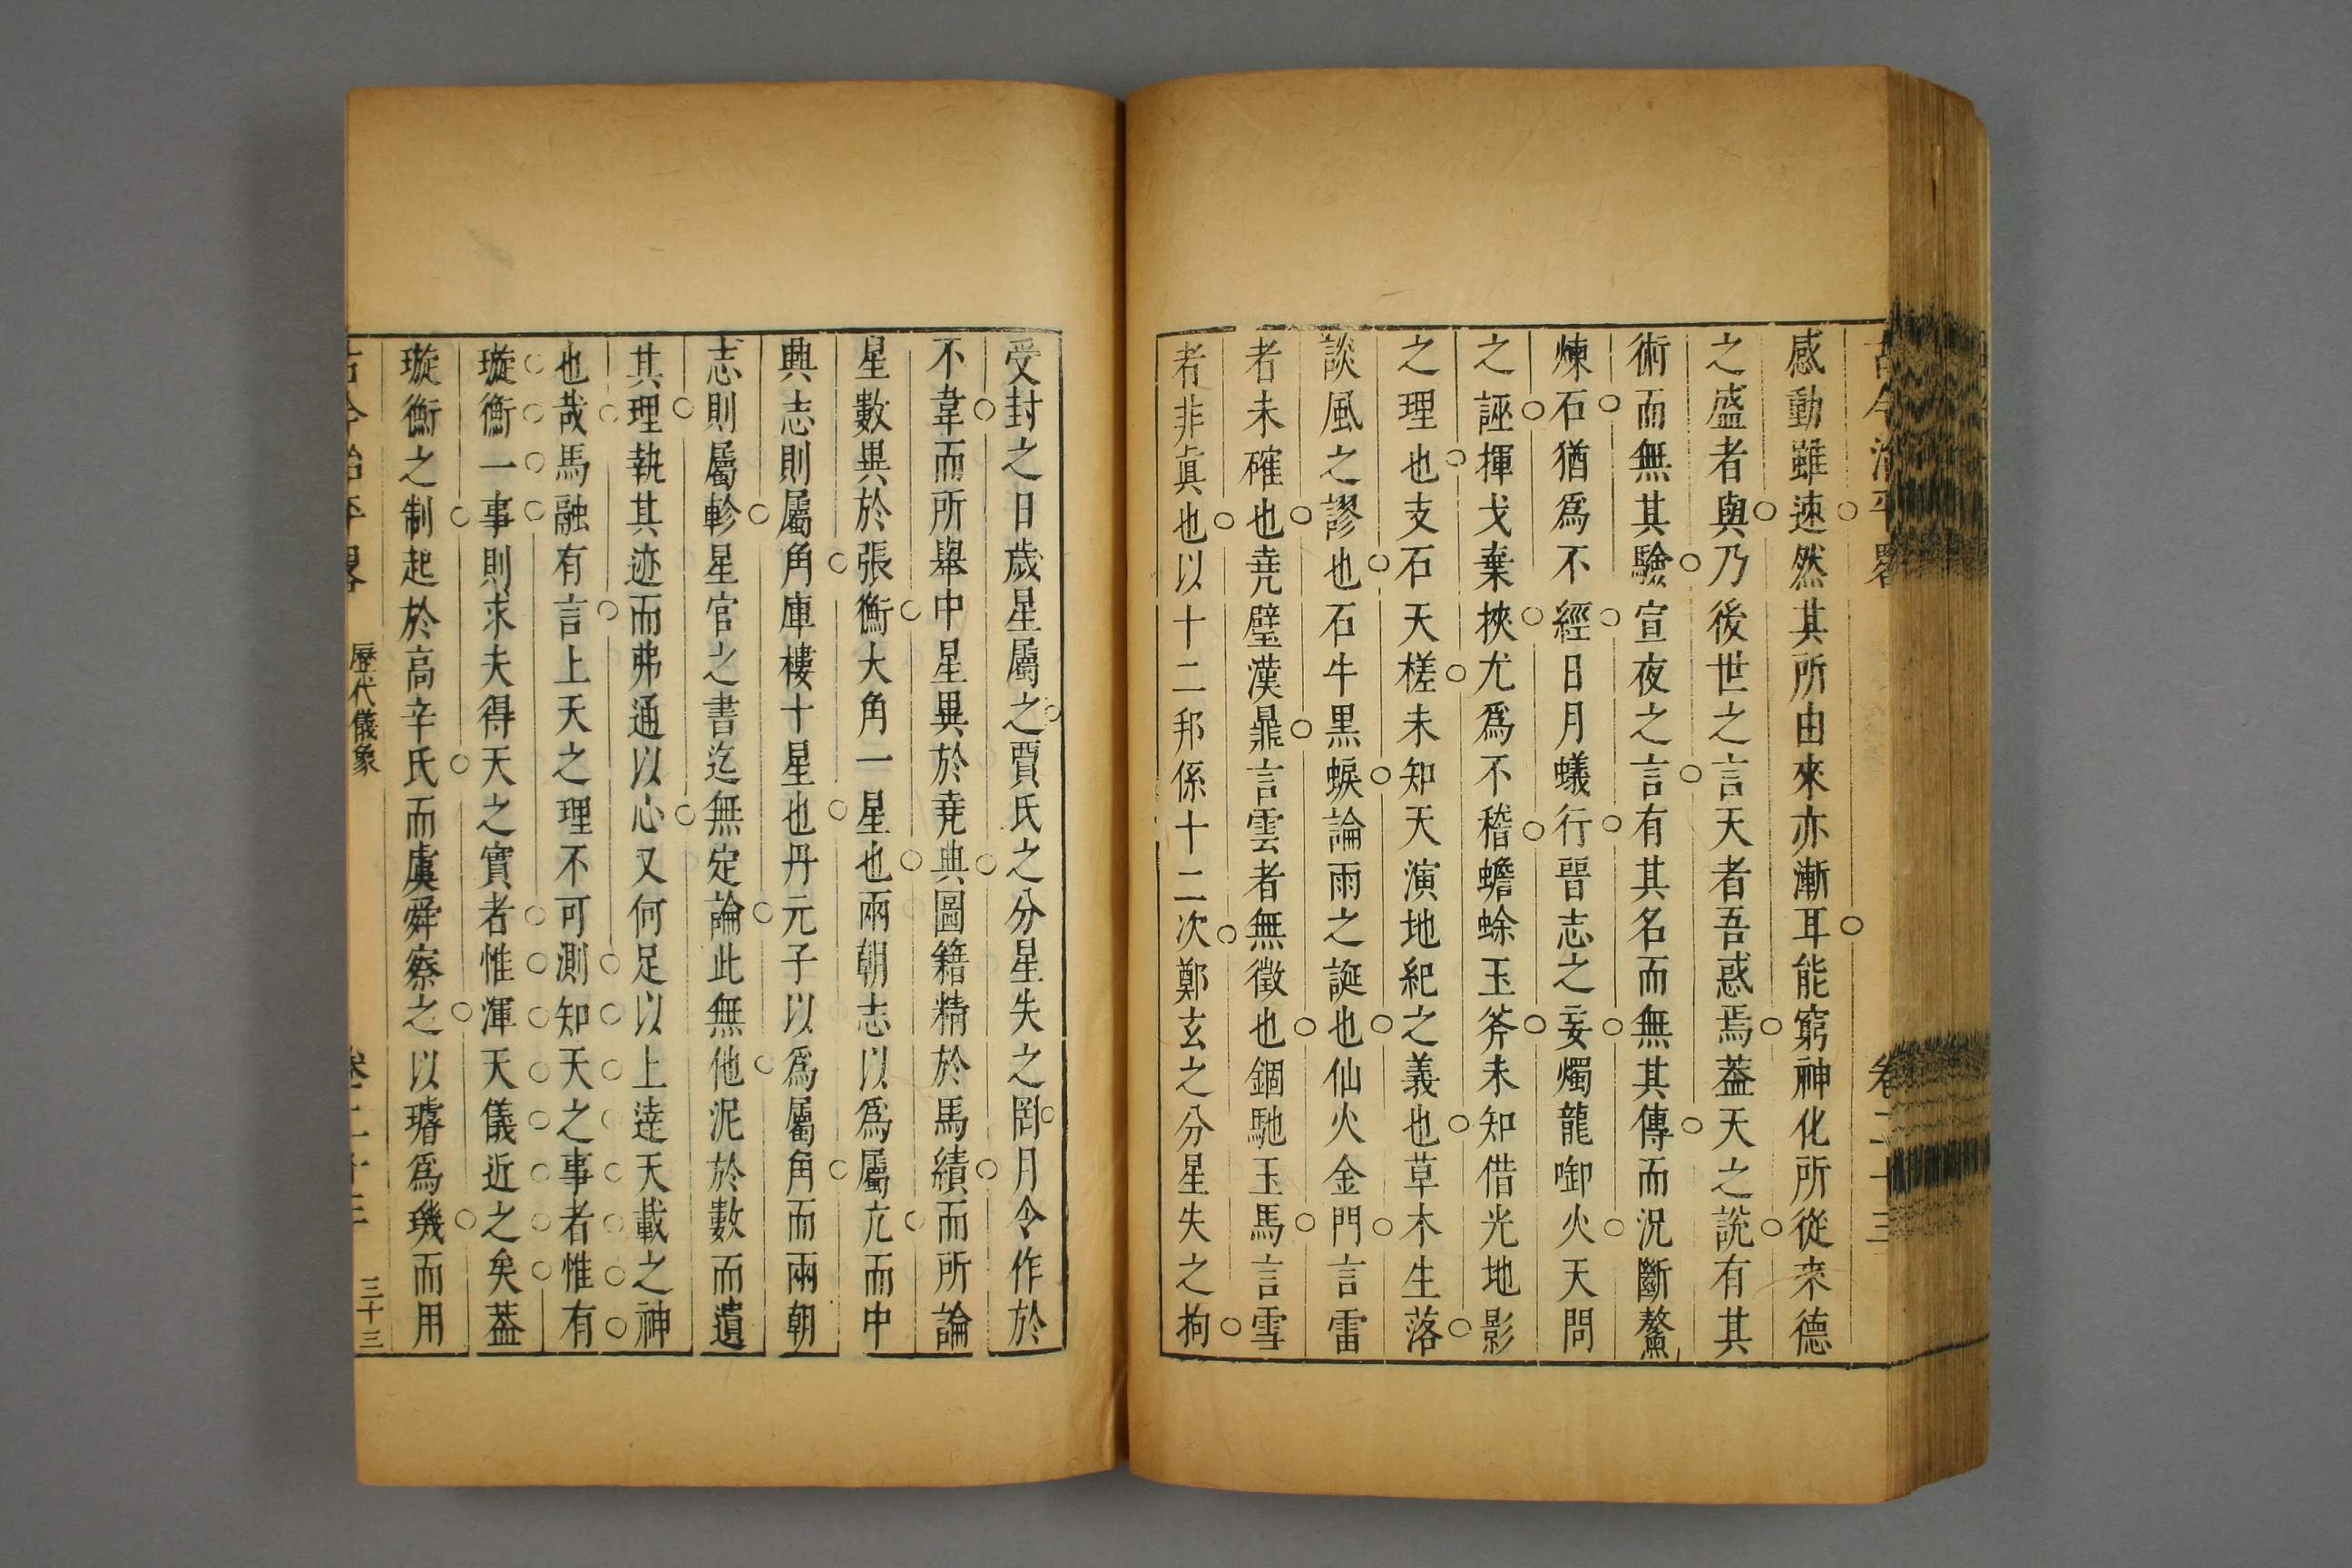 古今治平畧 卷二十三
感動雖速然其所由來亦漸耳能窮神化所從来德
之盛者與乃後世之言天者吾惑焉葢天之說有其
術而無其驗宣夜之言有其名而無其傳而況斷鰲
煉石猶爲不經日月蟻行晉志之妄燭龍啣火天問
之誣揮戈棄挾尤爲不稽蟾蜍玉斧未知借光地影
之理也支石天槎未知天演地紀之義也草木生落
談風之謬也石牛黒蜧論雨之誕也仙火金門言雷
者未確也尭璧漢鼎言雲者無徵也錮馳玉馬言雪
者非眞也以十二邦係十二次鄭玄之分星失之拘
受封之日歲星屬之賈氏之分星失之罔月令作於
不韋而所舉中星異於尭典圖籍精於馬績而所論
星數異於張衡大角一星也兩朝志以爲屬亢而中
興志則屬角庫樓十星也丹元子以爲屬角而兩朝
志則屬軫星官之書迄無定論此無他泥於數而遺
其理執其迹而弗通以心又何足以上達天載之神
也哉馬融有言上天之理不可測知天之事者惟有
璇衡一事則求夫得天之實者惟渾天儀近之矣葢
璇衡之制起於高辛氏而虞舜察之以璿爲璣而用
古今治平畧 歷代儀象 卷二十三 三十三